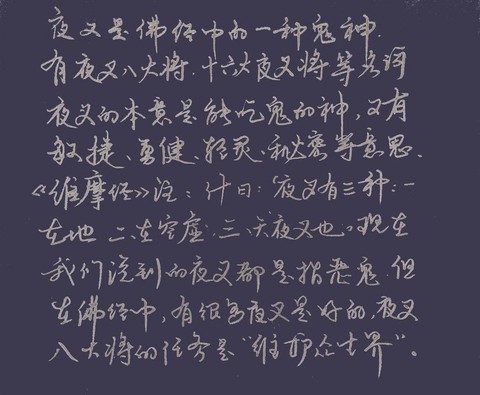 夜叉是佛经中的一种鬼神.
有夜叉八大将.十六大夜叉将等名词
夜叉的本意是能吃鬼的神,又有
敏捷、勇健、轻灵、秘密等意思.
《维摩经》注:什曰:夜叉有三种:一
在地 二在空虚.三、天夜叉也。现在
我们说到的夜叉都是指恶鬼.但
在佛经中,有很多夜叉是好的,夜叉
八大将的任务是"维护众生界"。